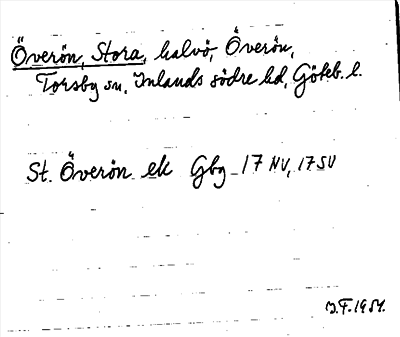 Överön, Stora, halvö, Överön,
Torsby sn, Inlands södre hd, Göteb. l.
St. Överön ek Gbg 17 NV, 17 SV
M.F. 1954.